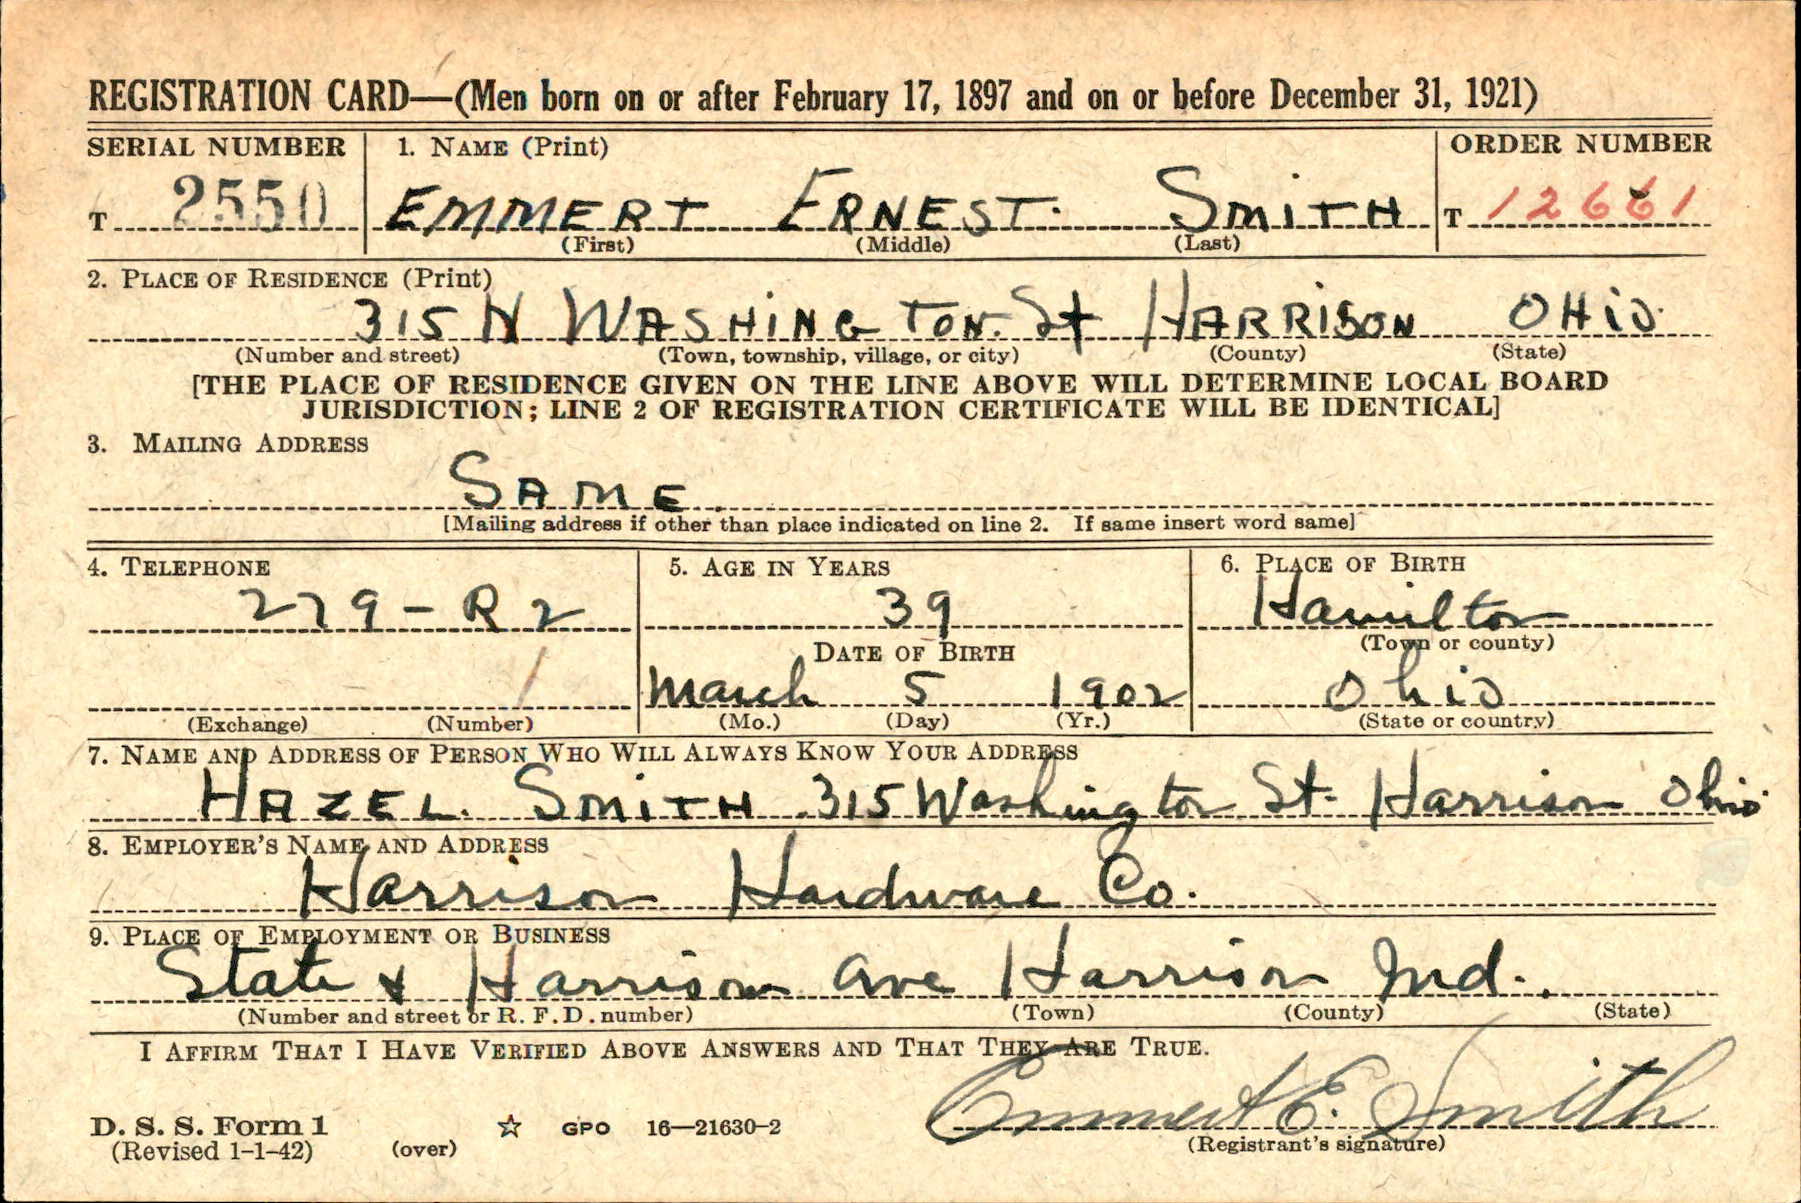 REGISTRATION CARD—(Men born on or after February 17, 1897 and on or before December 31, 1921)
SERIAL NUMBER 1. NAME (Print) ORDER NUMBER
T 2550 EMMERT ERNEST. SMITH T 12661
(First) (Middle) (Last)
2. PLACE OF RESIDENCE (Print)
315 N WASHINGTON. St HARRISON OHIO.
(Number and street) (Town, township, village, or city) (County) (State)
[THE PLACE OF RESIDENCE GIVEN ON THE LINE ABOVE WILL DETERMINE LOCAL BOARD
JURISDICTION; LINE 2 OF REGISTRATION CERTIFICATE WILL BE IDENTICAL]
3. MAILING ADDRESS
SAME.
[Mailing address if other than place indicated on line 2. If same insert word same]
4. TELEPHONE 5. AGE IN YEARS 6. PLACE OF BIRTH
279-R2 39 Hamilton
DATE OF BIRTH (Town or county)
March 5 1902 Ohio
(Exchange) (Number) (Mo.) (Day) (Yr.) (State or country)
7. NAME AND ADDRESS OF PERSON WHO WILL ALWAYS KNOW YOUR ADDRESS
HAZEL. SMITH. 315 Washington St. Harrison Ohio.
8. EMPLOYER'S NAME AND ADDRESS
Harrison Hardware Co.
9. PLACE OF EMPLOYMENT OR BUSINESS
State & Harrison Ave Harrison Ind.
(Number and street or R. F. D. number) (Town) (County) (State)
I AFFIRM THAT I HAVE VERIFIED ABOVE ANSWERS AND THAT THEY ARE TRUE.
Emmert E. Smith
D. S. S. Form 1 ☆ GPO 16—21630-2
(Revised 1-1-42) (over) (Registrant's signature)